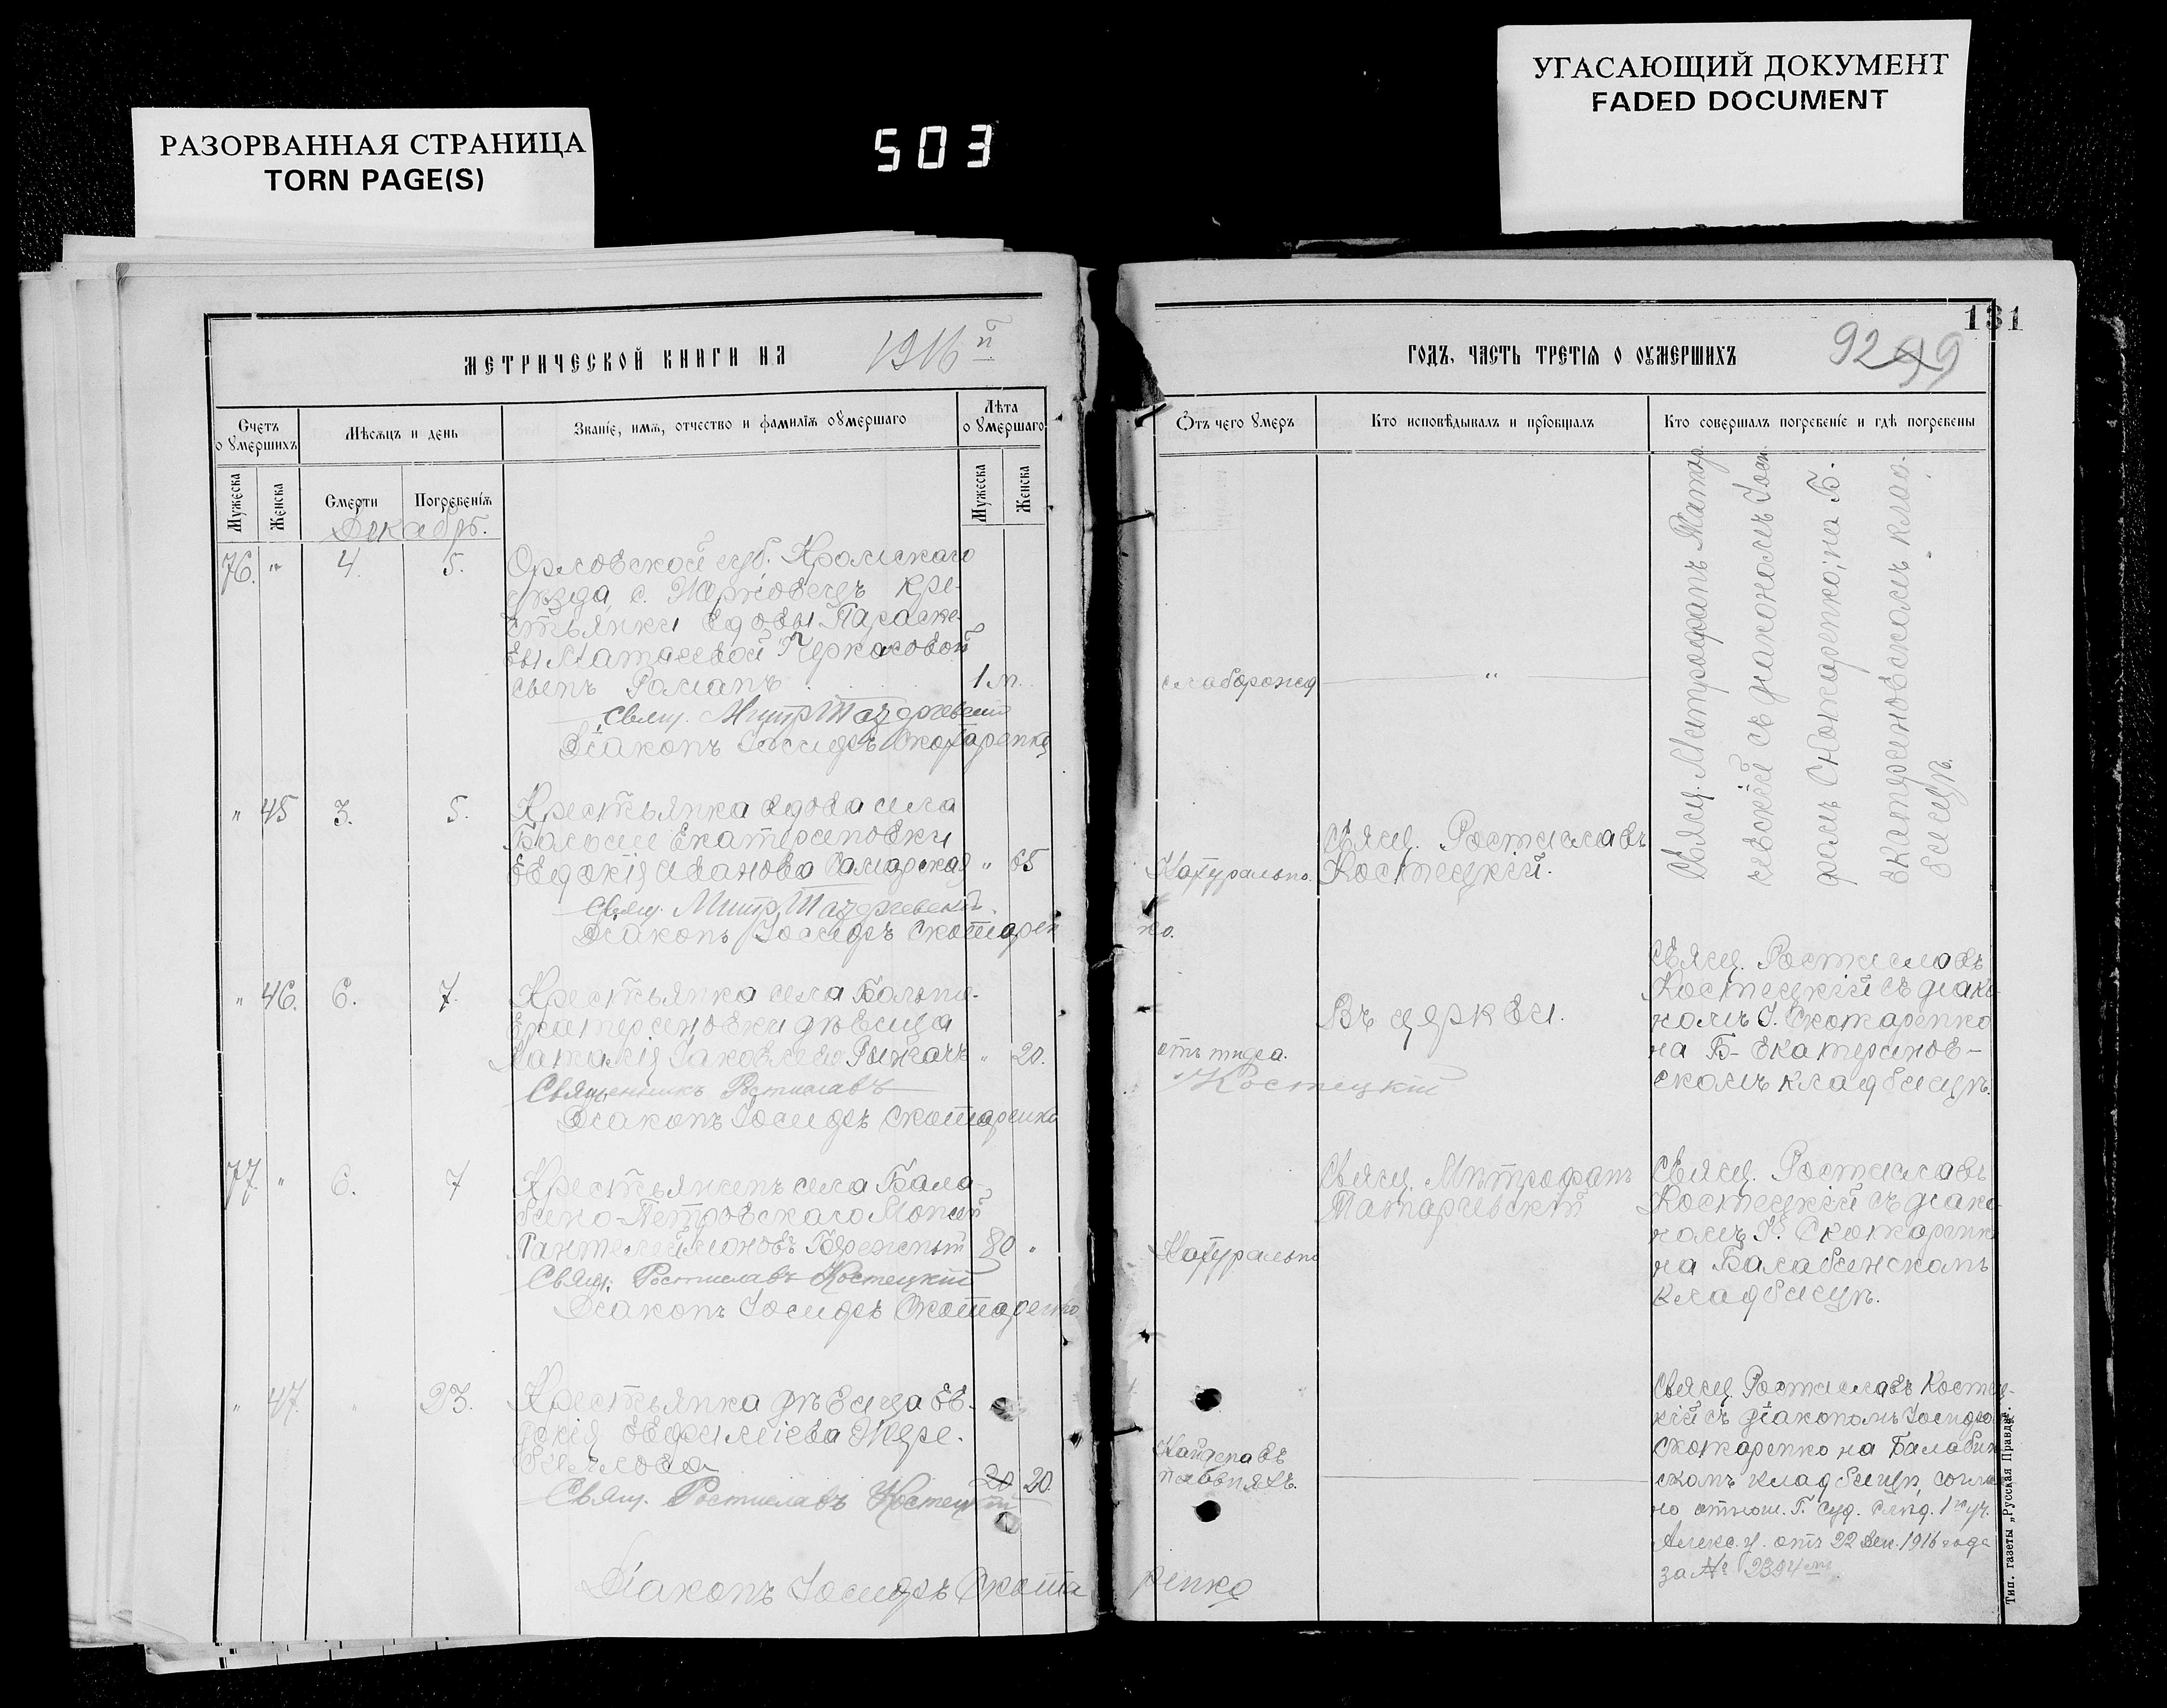 УГАСАЮЩИЙ ДОКУМЕНТ
FADED DOCUMENT
РАЗОРВАННАЯ СТРАНИЦА
TORN PAGE(S)
503
131
МЕТРИЧЕСКОЙ КНИГИ НА 1916 й
Счетъ о умершихъ
Мѣсяцъ и день
Званіе, имя, отчество и фамилія умершаго
Лѣта о умершаго
Мужеска
Женска
Смерти
Погребенія
Мужеска
Женска
Декабрь.
76. " 4. 5. Орловской губ. Кромскаго
уѣзда, с. кре-
стьянки вдовы Параске-
вы Черкасовой
сынъ Романъ 1 м.
Свящ. Митр.
Діаконъ Іосифъ Скотаренко
" 45 3. 5. Крестьянка вдова села
Больше Екатериновки
Евдокія Иванова Самарская " 65
Свящ. Митр.
Діаконъ Іосифъ Скотарен
" 46. 6. 7. Крестьянка села Больше-
Екатериновки дѣвица
Наталія Яковлева " 20.
Священникъ Ростиславъ
Діаконъ Іосифъ Скотаренко
77 " 6. 7 Крестьянинъ села Бала-
бино-Петровскаго
Пантелеймоновъ 80 "
Свящ. Ростиславъ Костецкій
Діаконъ Іосифъ Скотаренко
" 47. " 23. Крестьянка дѣвица Ев-
докія Евфиміева Пере-
20 20.
Свящ. Ростиславъ Костецкій
Діаконъ Іосифъ Скота
ГОДЪ, ЧАСТЬ ТРЕТІЯ О УМЕРШИХЪ
92 99
Отъ чего умеръ
Кто исповѣдывалъ и пріобщалъ
Кто совершалъ погребеніе и гдѣ погребены
слаборожд "
Свящ. Митрофанъ Татар
скій съ діакономъ Іоси
фомъ Скотаренко; на Б.
Екатериновскомъ клад-
бищѣ.
Натурально.
Свящ. Ростиславъ
Костецкій.
ко.
отъ тифа.
Въ церкви.
Костецкій
Свящ. Ростиславъ
Костецкій съ діако-
номъ І. Скотаренко
на Б- Екатеринов-
скомъ кладбищѣ.
Натурально
Свящ. Митрофанъ
Свящ. Ростиславъ
Костецкій съ діако-
номъ І. Скотаренко
на Балабинскомъ
кладбищѣ.
Найдена въ
Свящ Ростиславъ Костец-
кій съ діакономъ Іосифом
Скотаренко на Балабин
скомъ кладбищѣ, соглас
но отнош. Г. Суд. Слѣд. 1го уч.
Алекс. у. отъ 22 Дек. 1916 года
за №
ренко
Тип. газеты „Русская Правда“.